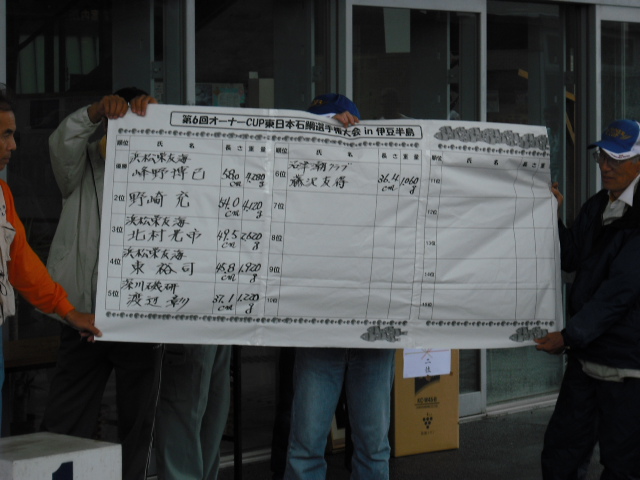 第6回オーナーCUP東日本石鯛選手権大会 in 伊豆半島
順位 氏名 長さ 重量 順位 氏名 長さ 重量 順位 氏名 長さ 重量
優勝 浜松東友海
峰野博巳 58.0cm
2位 野崎充 54.0cm 4,120g
3位 浜松東友海
北村光市 49.5cm 2,620g
4位 浜松東友海
東裕司 45.8cm 1,920g
5位 深川磯研
渡辺 37.1cm 1,220g
6位 クラブ
友将 36.4cm 1,060g
7位
8位
9位
10位
11位
12位
13位
14位
15位
1